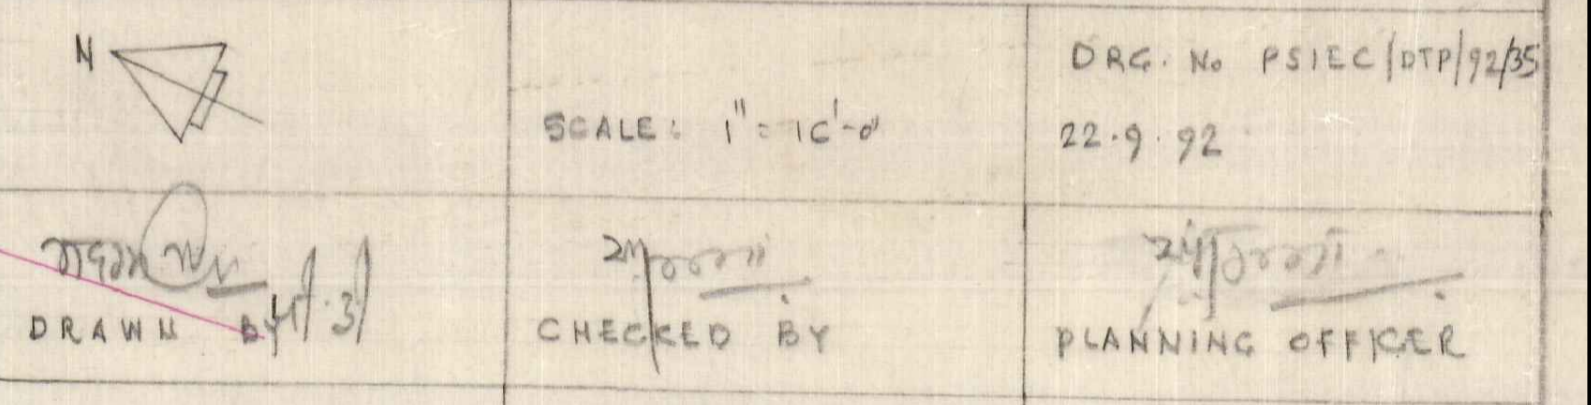 N
SCALE: 1" = 10'-0"
DRG. No PSIEC/DTP/92/35
22.9.92
DRAWN BY
CHECKED BY
PLANNING OFFICER